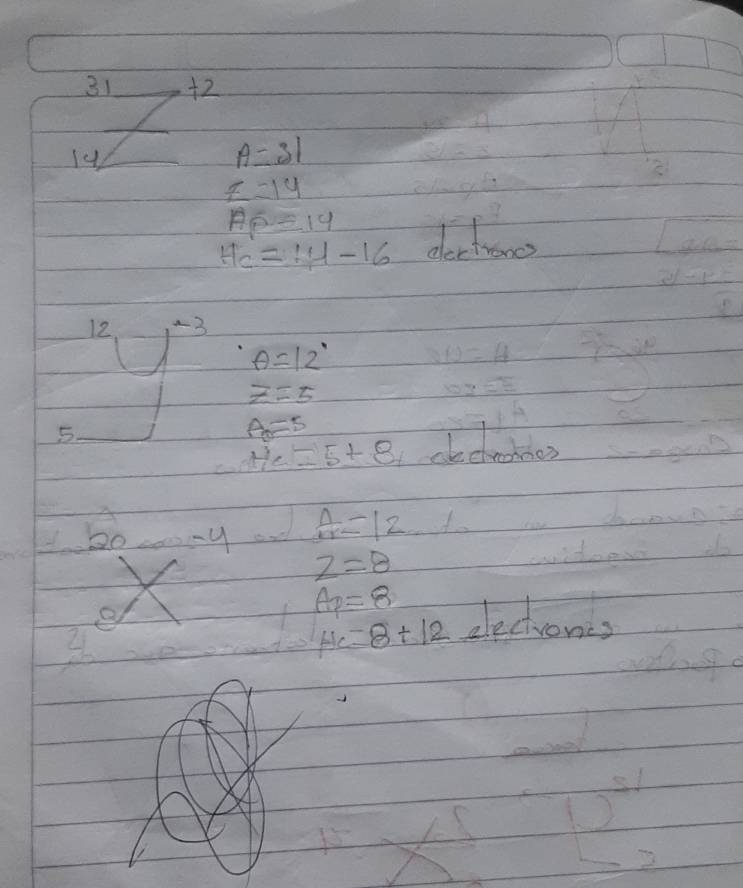 31 +2
Z
14
A=31
Z=14
Ap=14
Hc=14-16 electrones
12 -3
Y
5
A=12
Z=5
Ap=5
Hc=5+8 electrones
20 -4
X
8
A=12
Z=8
Ap=8
Hc=8+12 electrones